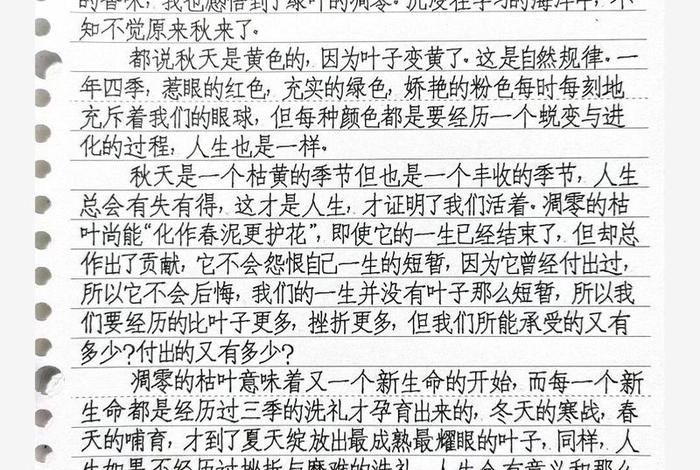 的香味，我也感悟到了绿叶的凋零。沉浸在学习的海洋中，不
知不觉原来秋来了。
都说秋天是黄色的，因为叶子变黄了。这是自然规律。一
年四季，惹眼的红色，充实的绿色，娇艳的粉色每时每刻地
充斥着我们的眼球，但每种颜色都是要经历一个蜕变与进
化的过程，人生也是一样。
秋天是一个枯黄的季节但也是一个丰收的季节，人生
总会有失有得，这才是人生，才证明了我们活着。凋零的枯
叶尚能“化作春泥更护花”，即使它的一生已经结束了，但却总
作出了贡献，它不会怨恨自己一生的短暂，因为它曾经付出过，
所以它不会后悔，我们的一生并没有叶子那么短暂，所以我
们要经历的比叶子更多，挫折更多，但我们所能承受的又有
多少？付出的又有多少？
凋零的枯叶意味着又一个新生命的开始，而每一个新
生命都是经历过三季的洗礼才孕育出来的，冬天的寒战，春
天的哺育，才到了夏天绽放出最成熟最耀眼的叶子，同样，人
生如果不经历过挫折与磨难的洗礼，人生会有意义和那么